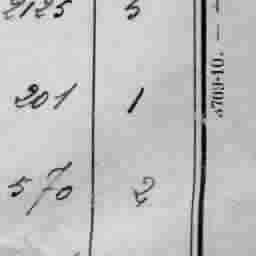 2125 5
201 1
570 2
3709-10. —